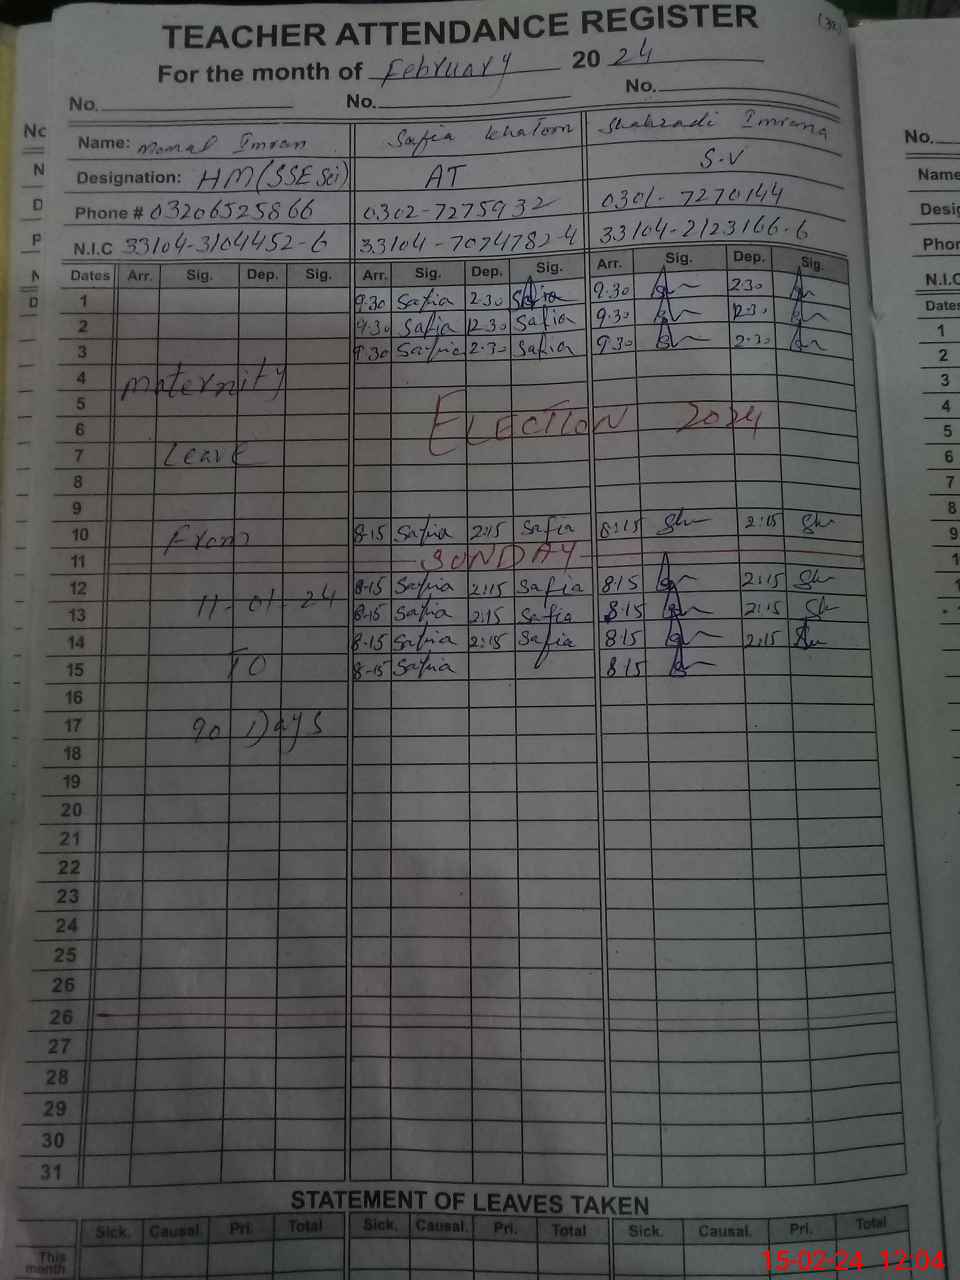 (32)
TEACHER ATTENDANCE REGISTER
For the month of February 2024
No. No. No.
Name: Momal Imran Safia Khatoon Shahzadi Imrana
Designation: HM (SSE Sci) AT S.V
Phone # 03206525866 0302-7275932 0301-7270144
N.I.C 33104-3104452-6 33104-7074782-4 33104-2123166-6
Dates Arr. Sig. Dep. Sig. Arr. Sig. Dep. Sig. Arr. Sig. Dep. Sig.
1 9.30 Safia 2.30 Safia 9.30 2.30
2 9.30 Safia 12.30 Safia 9.30 12.30
3 9.30 Safia 2.30 Safia 9.30 2.30
4 Maternity
5
6 ELECTION 2024
7 Leave
8
9
10 From 8-15 Safia 2:15 Safia 8:15 2:15
11 SUNDAY
12 11-01-24 8-15 Safia 2:15 Safia 8:15 2:15
13 8-15 Safia 2:15 Safia 8:15 2:15
14 8-15 Safia 2:15 Safia 815 2:15
15 TO 8-15 Safia 815
16
17 90 Days
18
19
20
21
22
23
24
25
26
26
27
28
29
30
31
STATEMENT OF LEAVES TAKEN
Sick. Causal. Pri. Total Sick. Causal. Pri. Total Sick. Causal. Pri. Total
This month
15-02-24 12:04
No.
Name
Desig
Phor
N.I.C
Dates
1
2
3
4
5
6
7
8
9